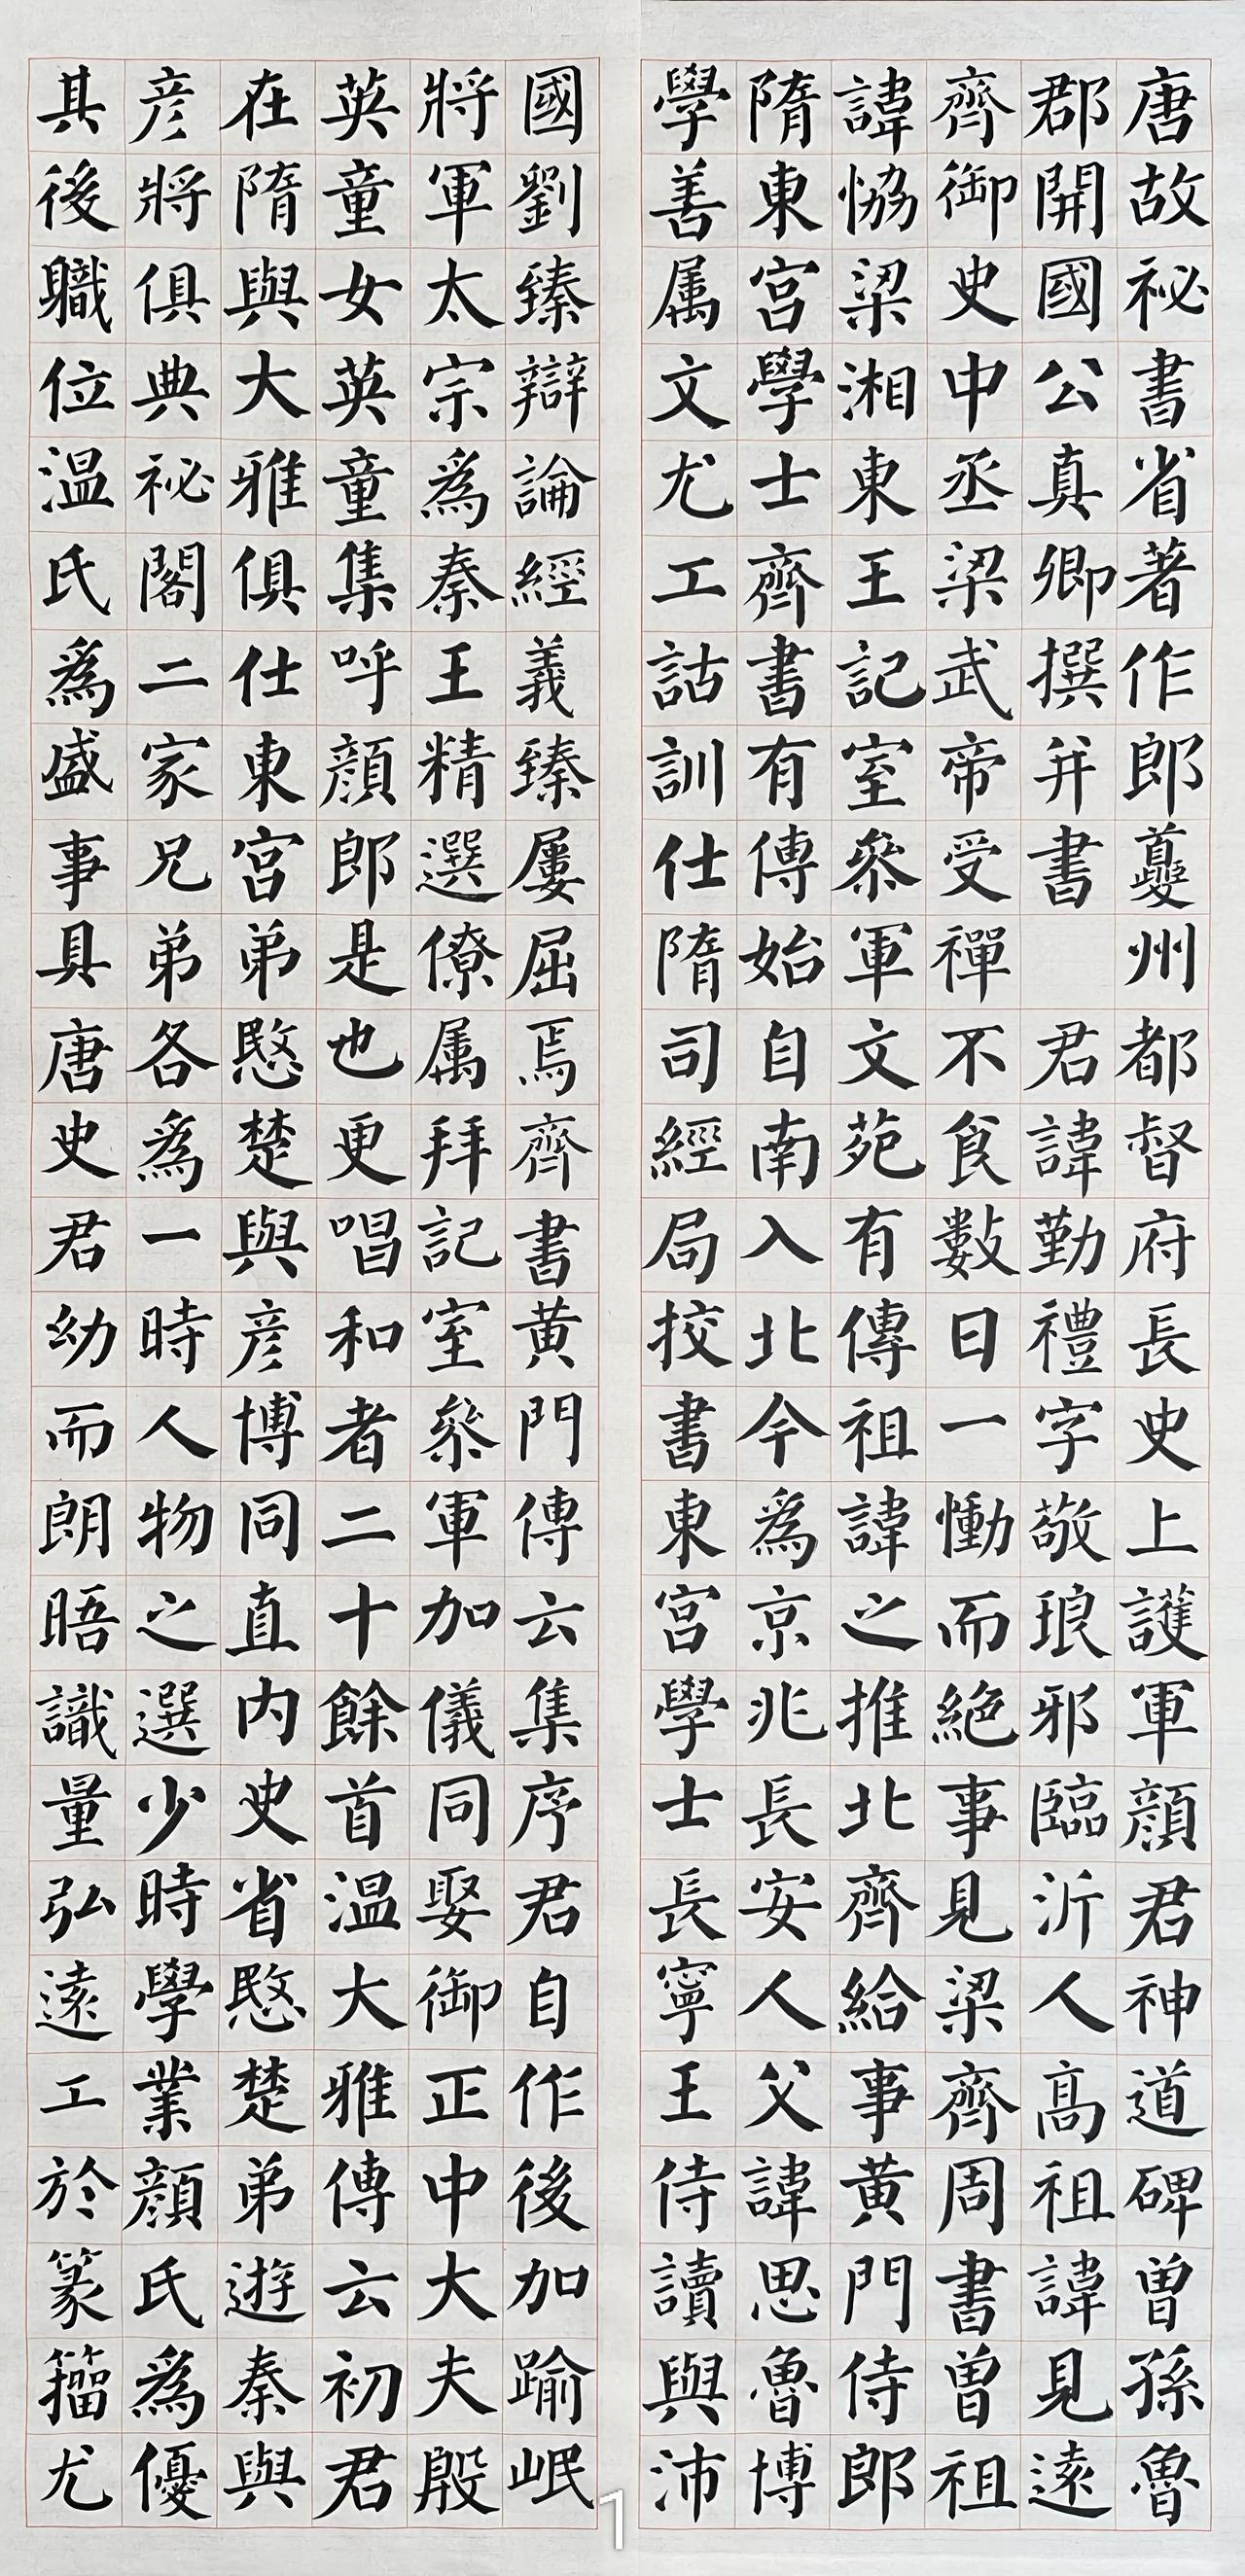 唐故祕書省著作郎夔州都督府長史上護軍顔君神道碑曽孫魯
郡開國公真卿撰并書君諱勤禮字敬琅邪臨沂人高祖諱見遠
齊御史中丞梁武帝受禪不食數日一慟而絶事見梁齊周書曽祖
諱恊梁湘東王記室叅軍文苑有傳祖諱之推北齊給事黄門侍郎
隋東宮學士齊書有傳始自南入北今爲京兆長安人父諱思魯博
學善属文尤工詁訓仕隋司經局挍書東宮學士長寧王侍讀與沛
國劉臻辯論經義臻屢屈焉齊書黄門傳云集序君自作後加踰岷
將軍太宗爲秦王精選僚属拜記室叅軍加儀同娶御正中大夫殷
英童女英童集呼顔郎是也更唱和者二十餘首温大雅傳云初君
在隋與大雅俱仕東宮弟愍楚與彦博同直内史省愍楚弟遊秦與
彦將俱典祕閣二家兄弟各爲一時人物之選少時學業顔氏爲優
其後職位温氏爲盛事具唐史君幼而朗晤識量弘遠工於篆籀尤
1